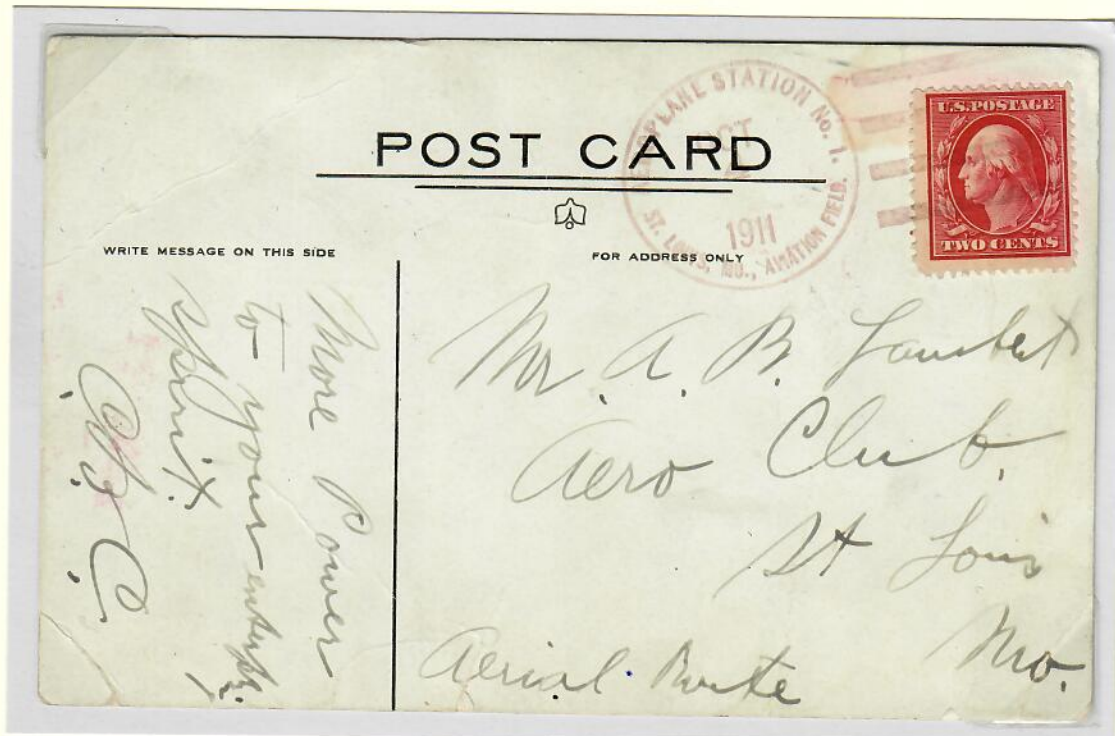 POST CARD
AEROPLANE STATION No. 1.
OCT
1911
ST. LOUIS, MO., AVIATION FIELD.
U.S. POSTAGE
TWO CENTS
WRITE MESSAGE ON THIS SIDE
FOR ADDRESS ONLY
More Power
to your
spirit.
Mr A. B. Lambert
Aero Club.
St Louis
Mo.
Aerial Route